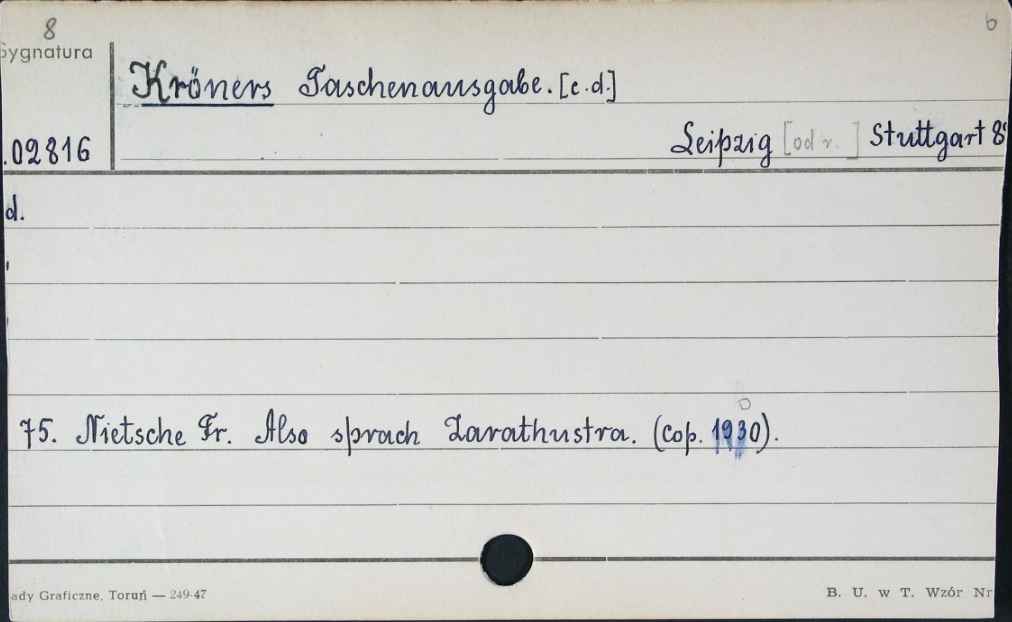 8
6
Sygnatura
Kröners Taschenausgabe. [c.d.]
.02816
Leipzig [od r. ] Stuttgart 8°
d.
75. Nietsche Fr. Also sprach Zarathustra. (Cop. 1930).
ady Graficzne, Toruń — 249-47
B. U. w T. Wzór Nr